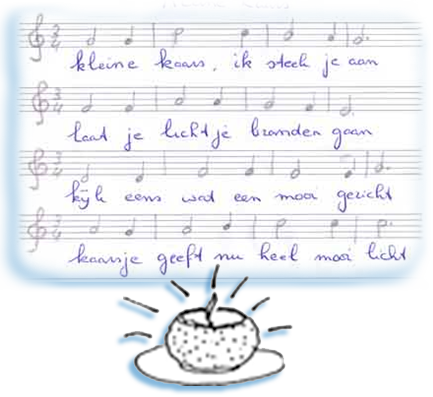 kleine kaars, ik steek je aan
laat je lichtje branden gaan
kijk eens wat een mooi gezicht
kaarsje geeft nu heel mooi licht